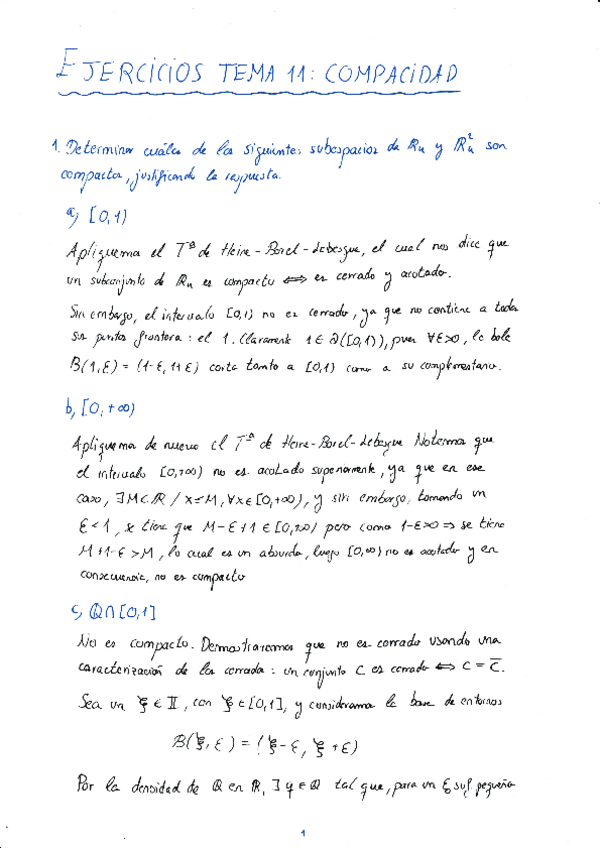 EJERCICIOS TEMA 11: COMPACIDAD
1. Determinar cuáles de los siguientes subespacios de ℝu y ℝ²u son
compactos, justificando la respuesta.
a) [0,1)
Apliquemos el Tª de Heine-Borel-Lebesgue, el cual nos dice que
un subconjunto de ℝu es compacto ⟺ es cerrado y acotado.
Sin embargo, el intervalo [0,1) no es cerrado, ya que no contiene a todos
sus puntos frontera: el 1. Claramente 1 ∈ ∂([0,1)), pues ∀ε>0, la bola
B(1,ε) = (1-ε, 1+ε) corta tanto a [0,1) como a su complementario.
b) [0,+∞)
Apliquemos de nuevo el Tª de Heine-Borel-Lebesgue Notemos que
el intervalo [0,+∞) no es acotado superiormente, ya que en ese
caso, ∃M∈ℝ / x≤M, ∀x∈[0,+∞), y sin embargo, tomando un
ε<1, se tiene que M-ε+1 ∈ [0,+∞) pero como 1-ε>0 ⇒ se tiene
M+1-ε>M, lo cual es un absurdo, luego [0,∞) no es acotado y en
consecuencia, no es compacto
c) ℚ∩[0,1]
No es compacto. Demostraremos que no es cerrado usando una
caracterización de los cerrados: un conjunto C es cerrado ⟺ C = C̅.
Sea un ξ ∈ 𝕀, con ξ ∈ [0,1], y consideramos la base de entornos
B(ξ,ε) = (ξ-ε, ξ+ε)
Por la densidad de ℚ en ℝ, ∃ q ∈ ℚ tal que, para un ε suf. pequeño
1